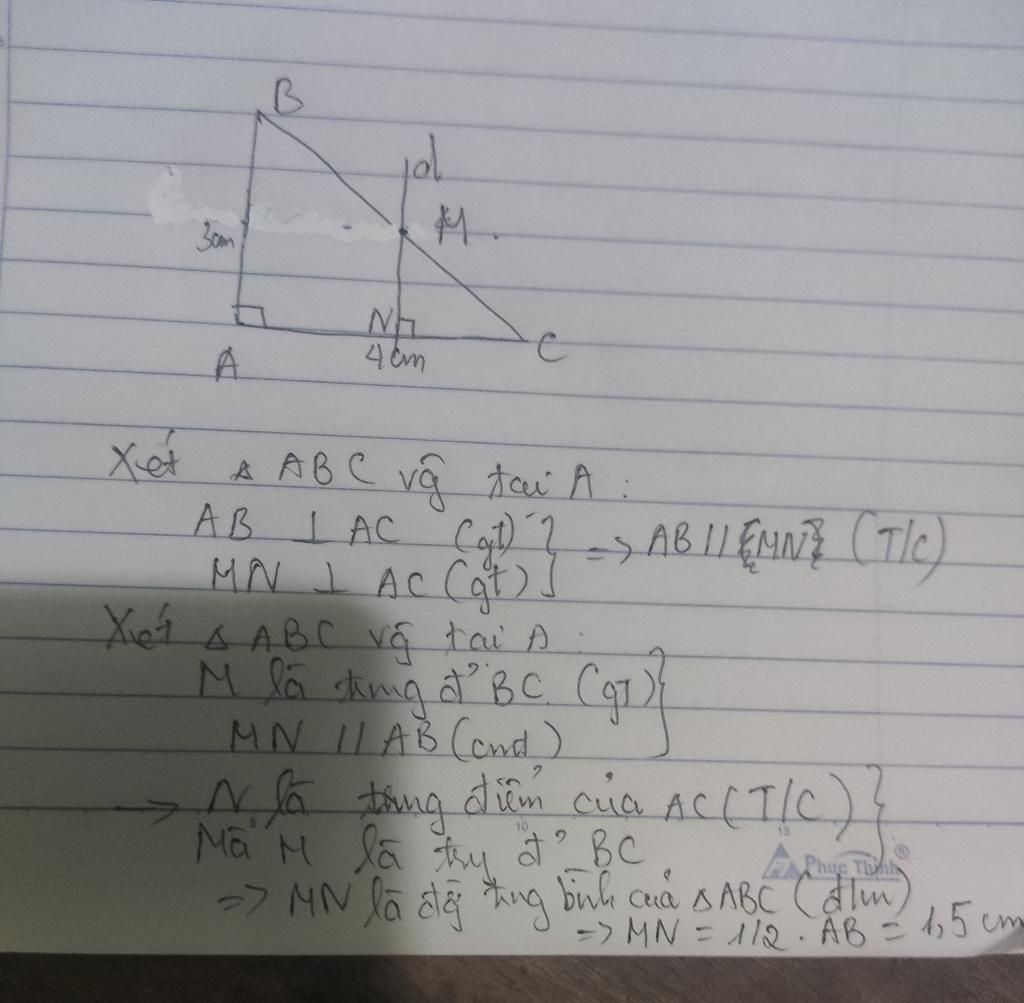 B
d
M
3cm
N
4cm
A
C
Xét △ ABC vg tại A :
AB ⊥ AC (gt) } => AB // {MN} (T/c)
MN ⊥ AC (gt)
Xét △ ABC vg tại A :
M là trung đ' BC (gT) }
MN // AB (cmt)
-> N là trung điểm của AC (T/C) }
Mà M là trg đ' BC
Phuc Thinh®
=> MN là đg trung bình của △ ABC (đ/n)
=> MN = 1/2 . AB = 1,5 cm